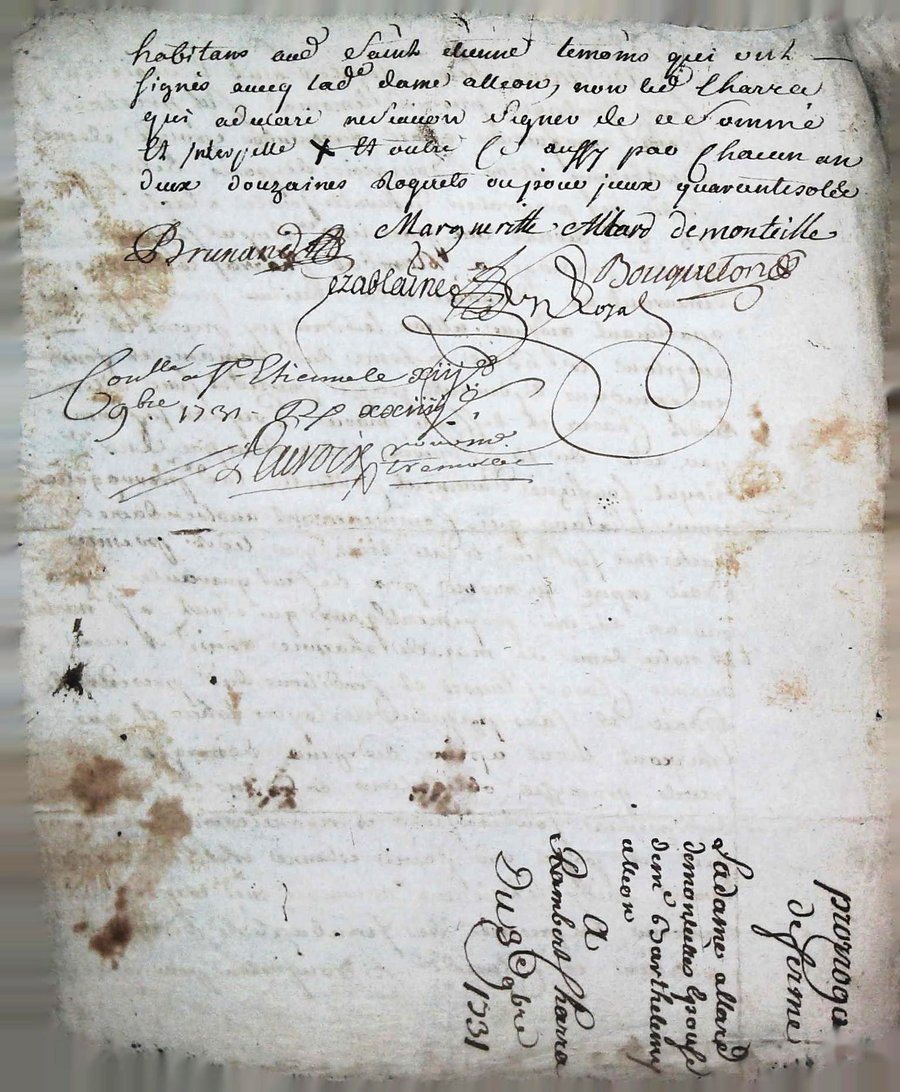 habitans aud Saint etienne temoins qui ont
signés avecq lade dame alleon, non led Charra
qui a declaré ne scavoir signer de ce sommé
Et Interpellé X Et outre Ce aussy par Chacun an
deux douzaines Roquets ou pour jceux quarante sols
Margueritte Allard de monteille
Brunand
Bouqueton
ezablaine Royal
Conllé a St Etienne le xiij
9bre 1731 - R xxiiij s
Lauvoix
prorroga
de ferme
Ladame allard
demonteilles Epouse
de mr Barthelemy
alleon
A
Rambert Charra
Du 8e 9bre
1731